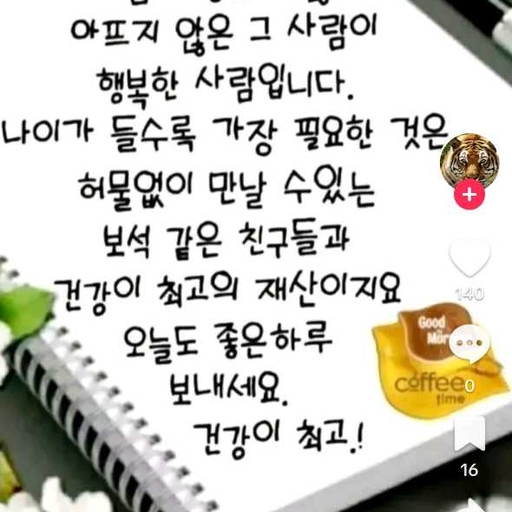 아프지 않은 그 사람이
행복한 사람입니다.
나이가 들수록 가장 필요한 것은
허물없이 만날 수있는
보석 같은 친구들과
건강이 최고의 재산이지요
오늘도 좋은하루
보내세요.
건강이 최고.!
Good
Mor
coffee
time
140
0
16